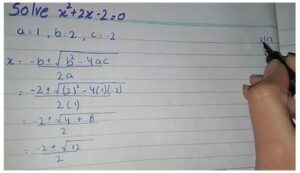 Solve x²+2x-2=0
a=1, b=2, c=-2
x = -b ± √b² - 4ac / 2a
= -2 ± √(2)² - 4(1)(-2) / 2(1)
= -2 ± √4 + 8 / 2
= -2 ± √12 / 2
2|12